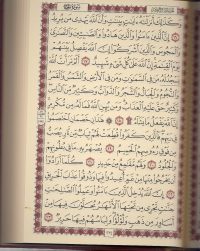 وَكَذَٰلِكَ أَنزَلْنَٰهُ ءَايَٰتٍۭ بَيِّنَٰتٍ وَأَنَّ ٱللَّهَ يَهْدِى مَن يُرِيدُ
١٦ إِنَّ ٱلَّذِينَ ءَامَنُوا۟ وَٱلَّذِينَ هَادُوا۟ وَٱلصَّٰبِـِٔينَ وَٱلنَّصَٰرَىٰ
وَٱلْمَجُوسَ وَٱلَّذِينَ أَشْرَكُوٓا۟ إِنَّ ٱللَّهَ يَفْصِلُ بَيْنَهُمْ
يَوْمَ ٱلْقِيَٰمَةِ إِنَّ ٱللَّهَ عَلَىٰ كُلِّ شَىْءٍ شَهِيدٌ ١٧ أَلَمْ تَرَ أَنَّ ٱللَّهَ
يَسْجُدُ لَهُۥ مَن فِى ٱلسَّمَٰوَٰتِ وَمَن فِى ٱلْأَرْضِ وَٱلشَّمْسُ وَٱلْقَمَرُ
وَٱلنُّجُومُ وَٱلْجِبَالُ وَٱلشَّجَرُ وَٱلدَّوَآبُّ وَكَثِيرٌ مِّنَ ٱلنَّاسِ
وَكَثِيرٌ حَقَّ عَلَيْهِ ٱلْعَذَابُ وَمَن يُهِنِ ٱللَّهُ فَمَا لَهُۥ مِن مُّكْرِمٍ
إِنَّ ٱللَّهَ يَفْعَلُ مَا يَشَآءُ ۩ ١٨ هَٰذَانِ خَصْمَانِ ٱخْتَصَمُوا۟
فِى رَبِّهِمْ فَٱلَّذِينَ كَفَرُوا۟ قُطِّعَتْ لَهُمْ ثِيَابٌ مِّن نَّارٍ يُصَبُّ
مِن فَوْقِ رُءُوسِهِمُ ٱلْحَمِيمُ ١٩ يُصْهَرُ بِهِۦ مَا فِى بُطُونِهِمْ
وَٱلْجُلُودُ ٢٠ وَلَهُم مَّقَٰمِعُ مِنْ حَدِيدٍ ٢١ كُلَّمَآ أَرَادُوٓا۟
أَن يَخْرُجُوا۟ مِنْهَا مِنْ غَمٍّ أُعِيدُوا۟ فِيهَا وَذُوقُوا۟ عَذَابَ ٱلْحَرِيقِ
٢٢ إِنَّ ٱللَّهَ يُدْخِلُ ٱلَّذِينَ ءَامَنُوا۟ وَعَمِلُوا۟ ٱلصَّٰلِحَٰتِ
جَنَّٰتٍ تَجْرِى مِن تَحْتِهَا ٱلْأَنْهَٰرُ يُحَلَّوْنَ فِيهَا مِنْ
أَسَاوِرَ مِن ذَهَبٍ وَلُؤْلُؤًا وَلِبَاسُهُمْ فِيهَا حَرِيرٌ ٢٣